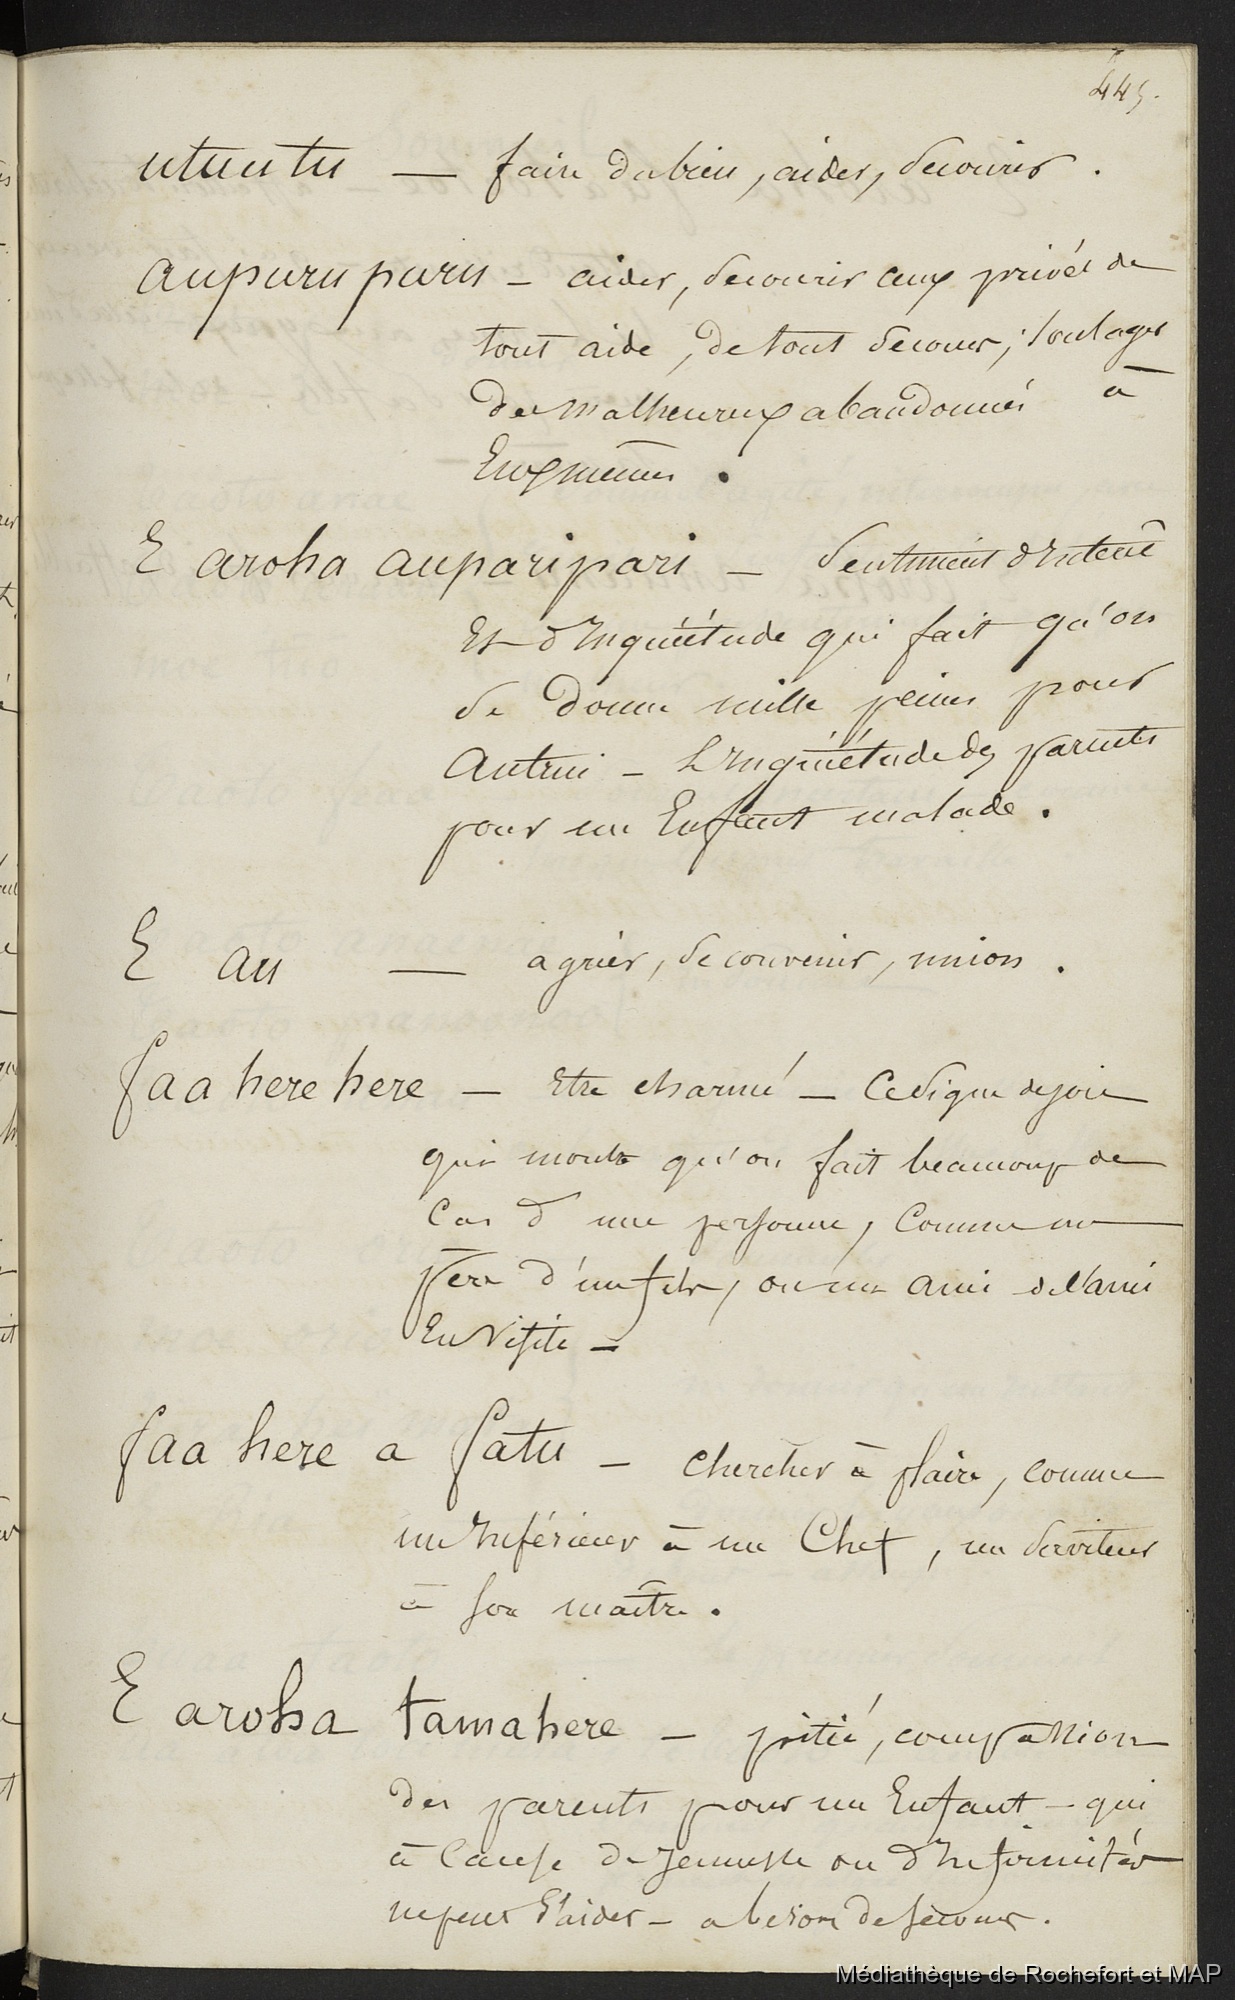 445.
utuutu — faire du bien, aider, secourir.
aupuru puru — aider, secourir ceux privés de
tout aide, de tout secours; soulager
des malheureux abandonnés à
Euxmêmes.
E aroha auparipari — Sentiment d'Interêt
Et d'Inquiétude qui fait qu'on
se donne mille peines pour
Autrui — L'Inquiétude des parents
pour un Enfant malade.
E au — agréer, se convenir, union.
faa here here — Etre charmé — Ce Signe de joie
qui montre qu'on fait beaucoup de
Cas d'une personne, Comme un
père d'un fils, ou un Ami de l'ami
En Visite —
faa here a fatu — chercher à plaire, comme
un Inférieur à un Chef, un Serviteur
à son maître.
E aroha tamahere — pitié, compassion
des parents pour un Enfant — qui
à Cause de Jeunesse ou d'Infirmités
ne peut S'aider — a besoin de secours.
Médiathèque de Rochefort et MAP